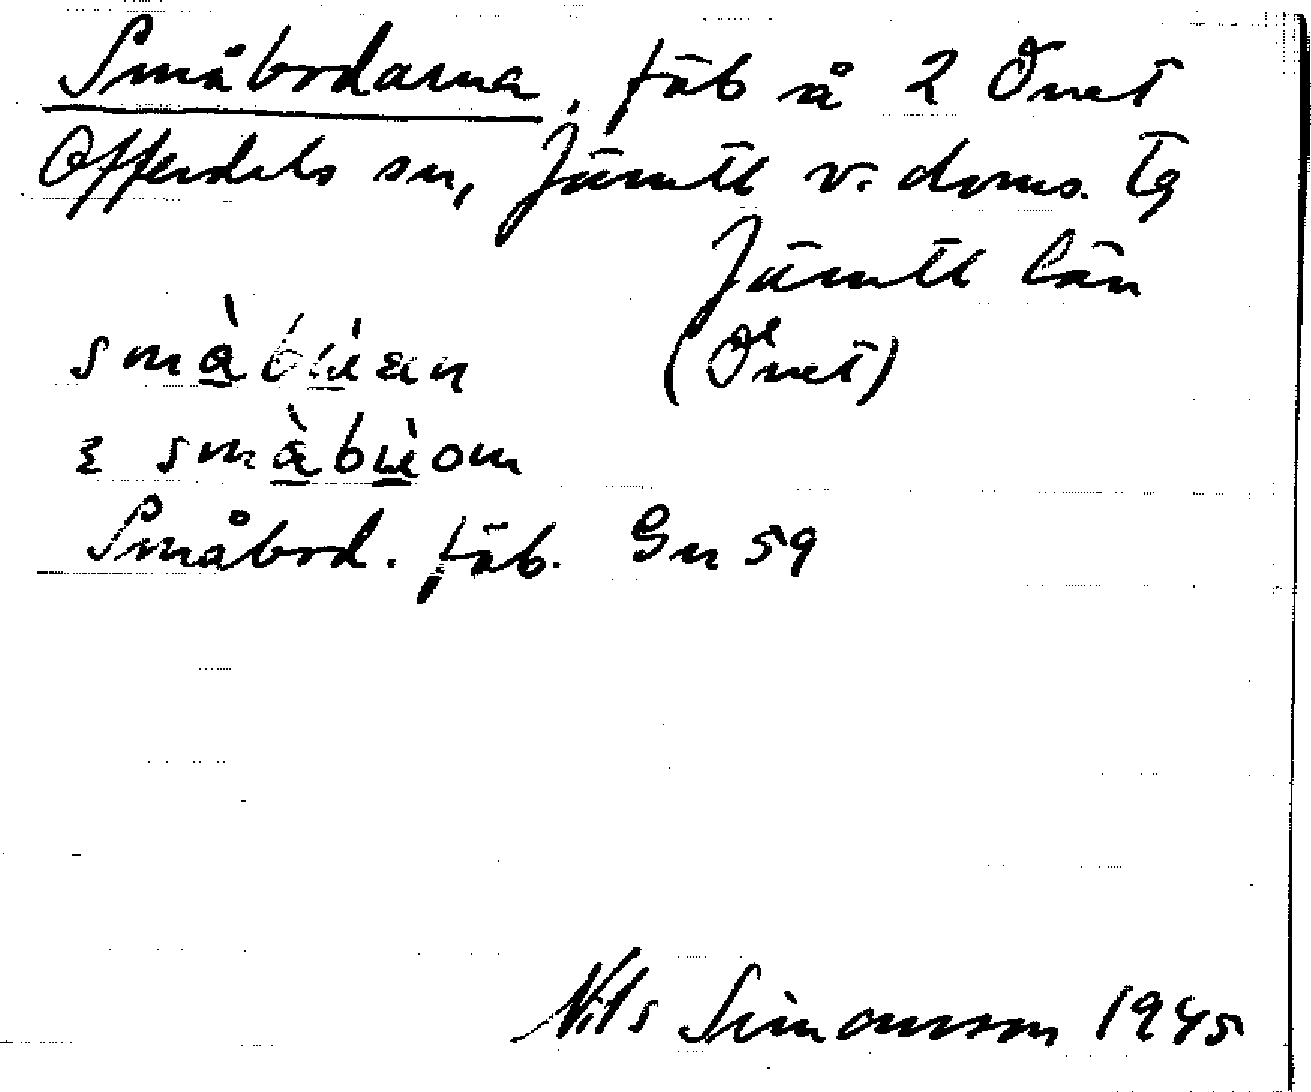 Småbodarna, fäb å 2 Önet
Offerdals sn, Jämtl v. doms. tg
Jämtl län
småbùæn (Önet)
ɛ småbùom
Småbod. fäb. Gn 59
Nils Simonsson 1945